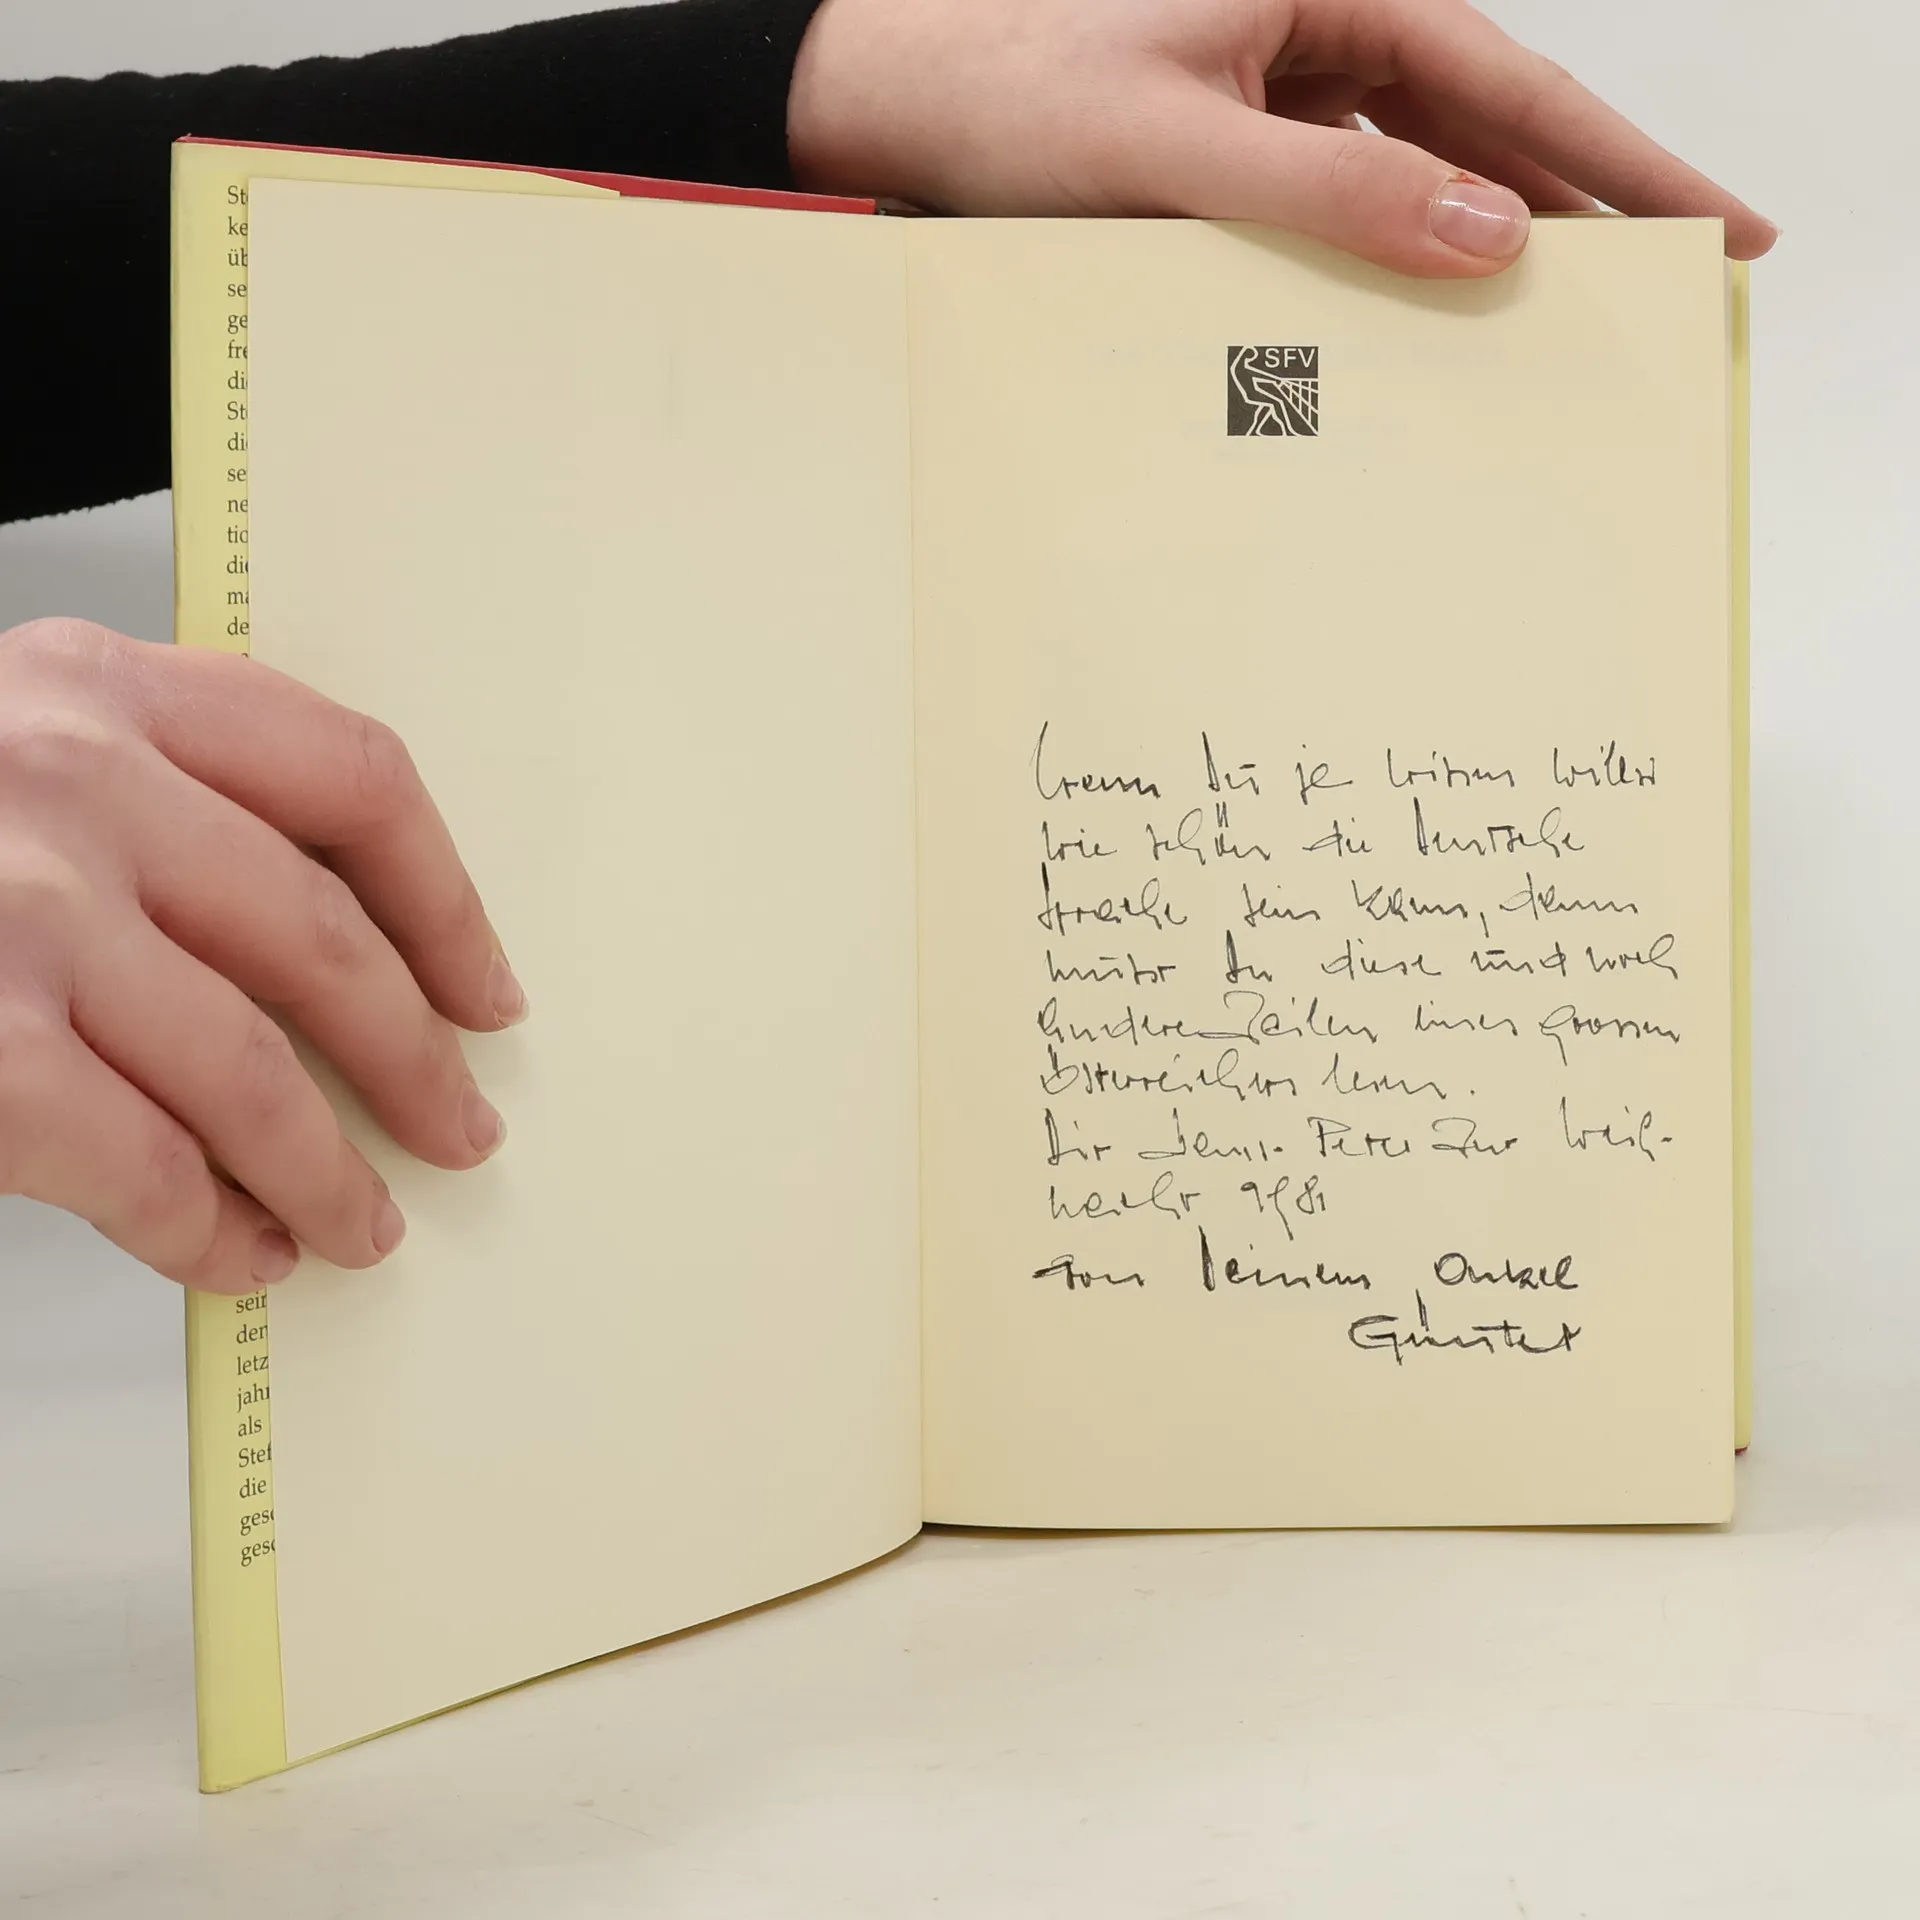 St
ke
üb
se
ge
fre
die
St
die
se
ne
tio
die
ma
de
sein
den
letz
jahr
als
Stef
die
gesc
gesc
SFV
Wenn Du je wissen willst
wie schön die deutsche
Sprache sein kann, dann
musst Du diese und noch
andere Zeilen eines grossen
Österreichers lesen.
Dir Peter zur Weih-
nacht 1981
von Deinem Onkel
Günter